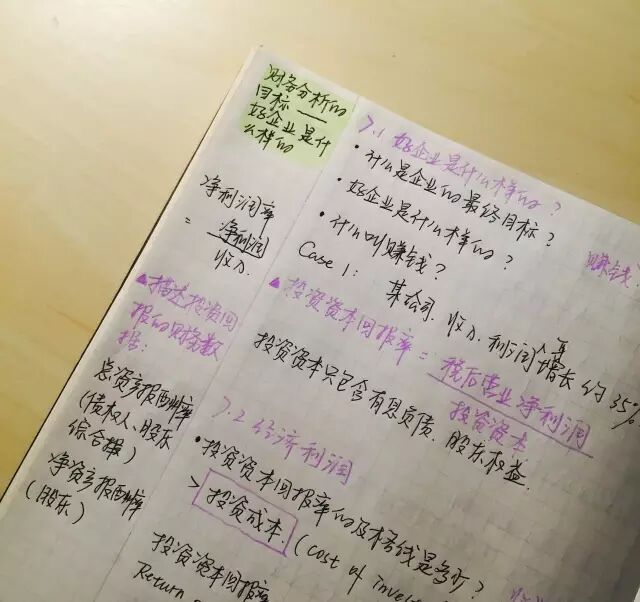 财务分析的
目标——
好企业是什
么样的
净利润率
= 净利润
收入
▲描述投资回
报的财务数
据:
总资产报酬率
(债权人、股东
综合报)
净资产报酬率
(股东)
7.1 好企业是什么样的?
·什么是企业的最终目标?
·好企业是什么样的?
·什么叫赚钱?
赚钱:
Case 1: 某公司 收入、利润年增长约35%.
▲投资资本回报率 = 税后营业净利润
投资资本
投资资本只包含有息负债、股东权益.
7.2 经济利润
·投资资本回报率的及格线是多少?
> 投资成本. (cost of
投资资本回报率
Return